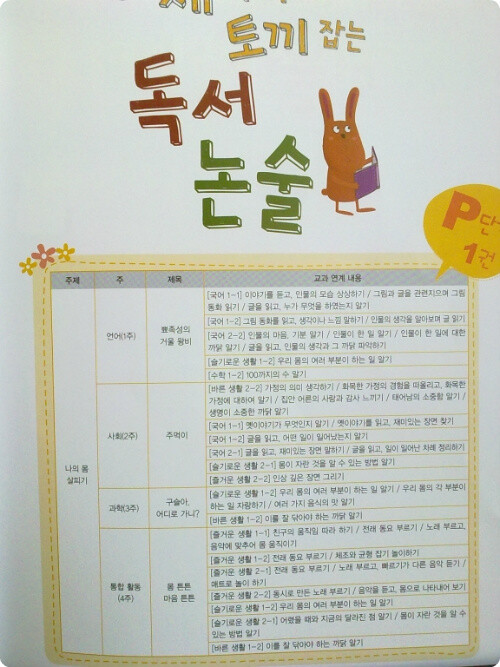 세
토끼 잡는
독서
논술
P단
1권
주제 주 제목 교과 연계 내용
나의 몸
살피기
언어(1주)
뾰족성의
거울 왕비
[국어 1-1] 이야기를 듣고, 인물의 모습 상상하기 / 그림과 글을 관련지으며 그림
동화 읽기 / 글을 읽고, 누가 무엇을 하였는지 알기
[국어 1-2] 그림 동화를 읽고, 생각이나 느낌 말하기 / 인물의 생각을 알아보며 글 읽기
[국어 2-2] 인물의 마음, 기분 알기 / 인물이 한 일 알기 / 인물이 한 일에 대한
까닭 알기 / 글을 읽고, 인물의 생각과 그 까닭 파악하기
[슬기로운 생활 1-2] 우리 몸의 여러 부분이 하는 일 알기
[수학 1-2] 100까지의 수 알기
사회(2주)
주먹이
[바른 생활 2-2] 가정의 의미 생각하기 / 화목한 가정의 경험을 떠올리고, 화목한
가정에 대하여 알기 / 집안 어른의 사랑과 감사 느끼기 / 태어남의 소중함 알기 /
생명이 소중한 까닭 알기
[국어 1-1] 옛이야기가 무엇인지 알기 / 옛이야기를 읽고, 재미있는 장면 찾기
[국어 1-2] 글을 읽고, 어떤 일이 일어났는지 알기
[국어 2-1] 글을 읽고, 재미있는 장면 말하기 / 글을 읽고, 일이 일어난 차례 정리하기
[슬기로운 생활 2-1] 몸이 자란 것을 알 수 있는 방법 알기
[즐거운 생활 2-2] 인상 깊은 장면 그리기
과학(3주)
구슬아,
어디로 가니?
[슬기로운 생활 1-2] 우리 몸의 여러 부분이 하는 일 알기 / 우리 몸의 각 부분이
하는 일 자랑하기 / 여러 가지 음식의 맛 알기
[바른 생활 1-2] 이를 잘 닦아야 하는 까닭 알기
통합 활동
(4주)
몸 튼튼
마음 튼튼
[즐거운 생활 1-1] 친구의 움직임 따라 하기 / 전래 동요 부르기 / 노래 부르고,
음악에 맞추어 몸 움직이기
[즐거운 생활 1-2] 전래 동요 부르기 / 체조와 균형 잡기 놀이하기
[즐거운 생활 2-1] 전래 동요 부르기 / 노래 부르고, 빠르기가 다른 음악 듣기 /
매트로 놀이 하기
[즐거운 생활 2-2] 동시로 만든 노래 부르기 / 음악을 듣고, 몸으로 나타내어 보기
[슬기로운 생활 1-2] 우리 몸의 여러 부분이 하는 일 알기
[슬기로운 생활 2-1] 어렸을 때와 지금의 달라진 점 알기 / 몸이 자란 것을 알 수
있는 방법 알기
[바른 생활 1-2] 이를 잘 닦아야 하는 까닭 알기